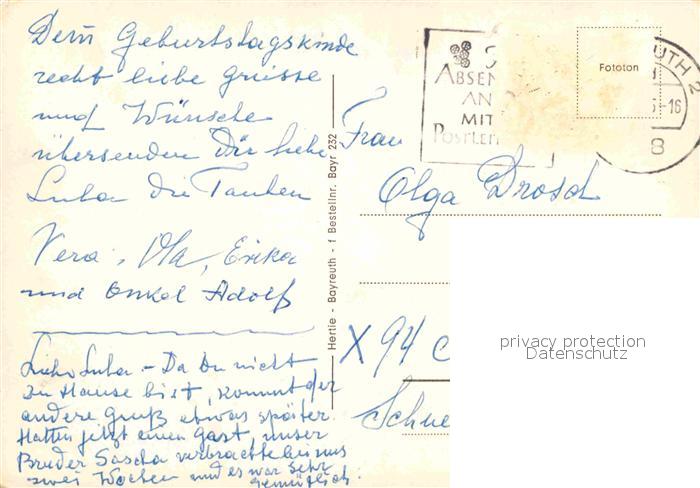 Dem Geburtstagskinde
recht liebe Grüsse
und Wünsche
übersenden Dir liebe
Luba die Tanten
Vera, Ola, Erika
und Onkel Adolf
Liebe Luba - Da Du nicht
zu Hause bist, kommt der
andere Gruß etwas später.
Hatten jetzt einen Gast, unser
Bruder Sascha verbrachte bei uns
zwei Wochen und es war sehr
gemütlich.
Hertie - Bayreuth - f Bestellnr. Bayr 232
ABSEN
AN
MIT
POSTLEI
Fototon
UTH 2
-16
8
Frau
Olga Drosch
X 94
Schne
privacy protection
Datenschutz